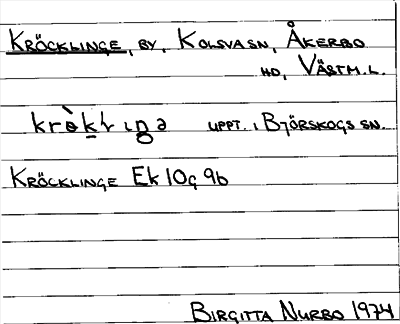 KRÖCKLINGE, BY, KOLSVA SN, ÅKERBO
HD, VÄSTM.L.
UPPT. I BJÖRSKOGS SN.
KRÖCKLINGE EK 10G 9b
BIRGITTA NURBO 1974